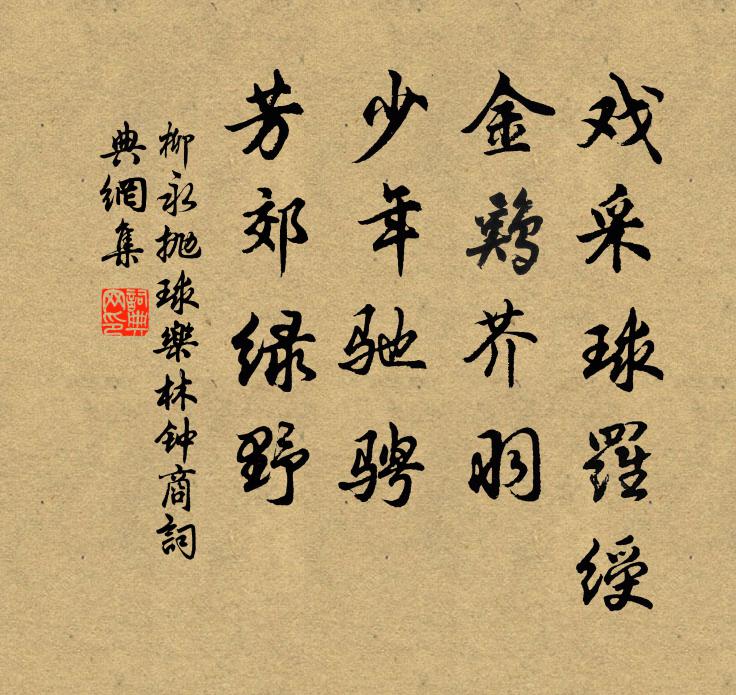 戏采球羅綬
金鷄芥羽
少年驰骋
芳郊绿野
柳永抛球樂林钟商詞
典網集
詞典
网印